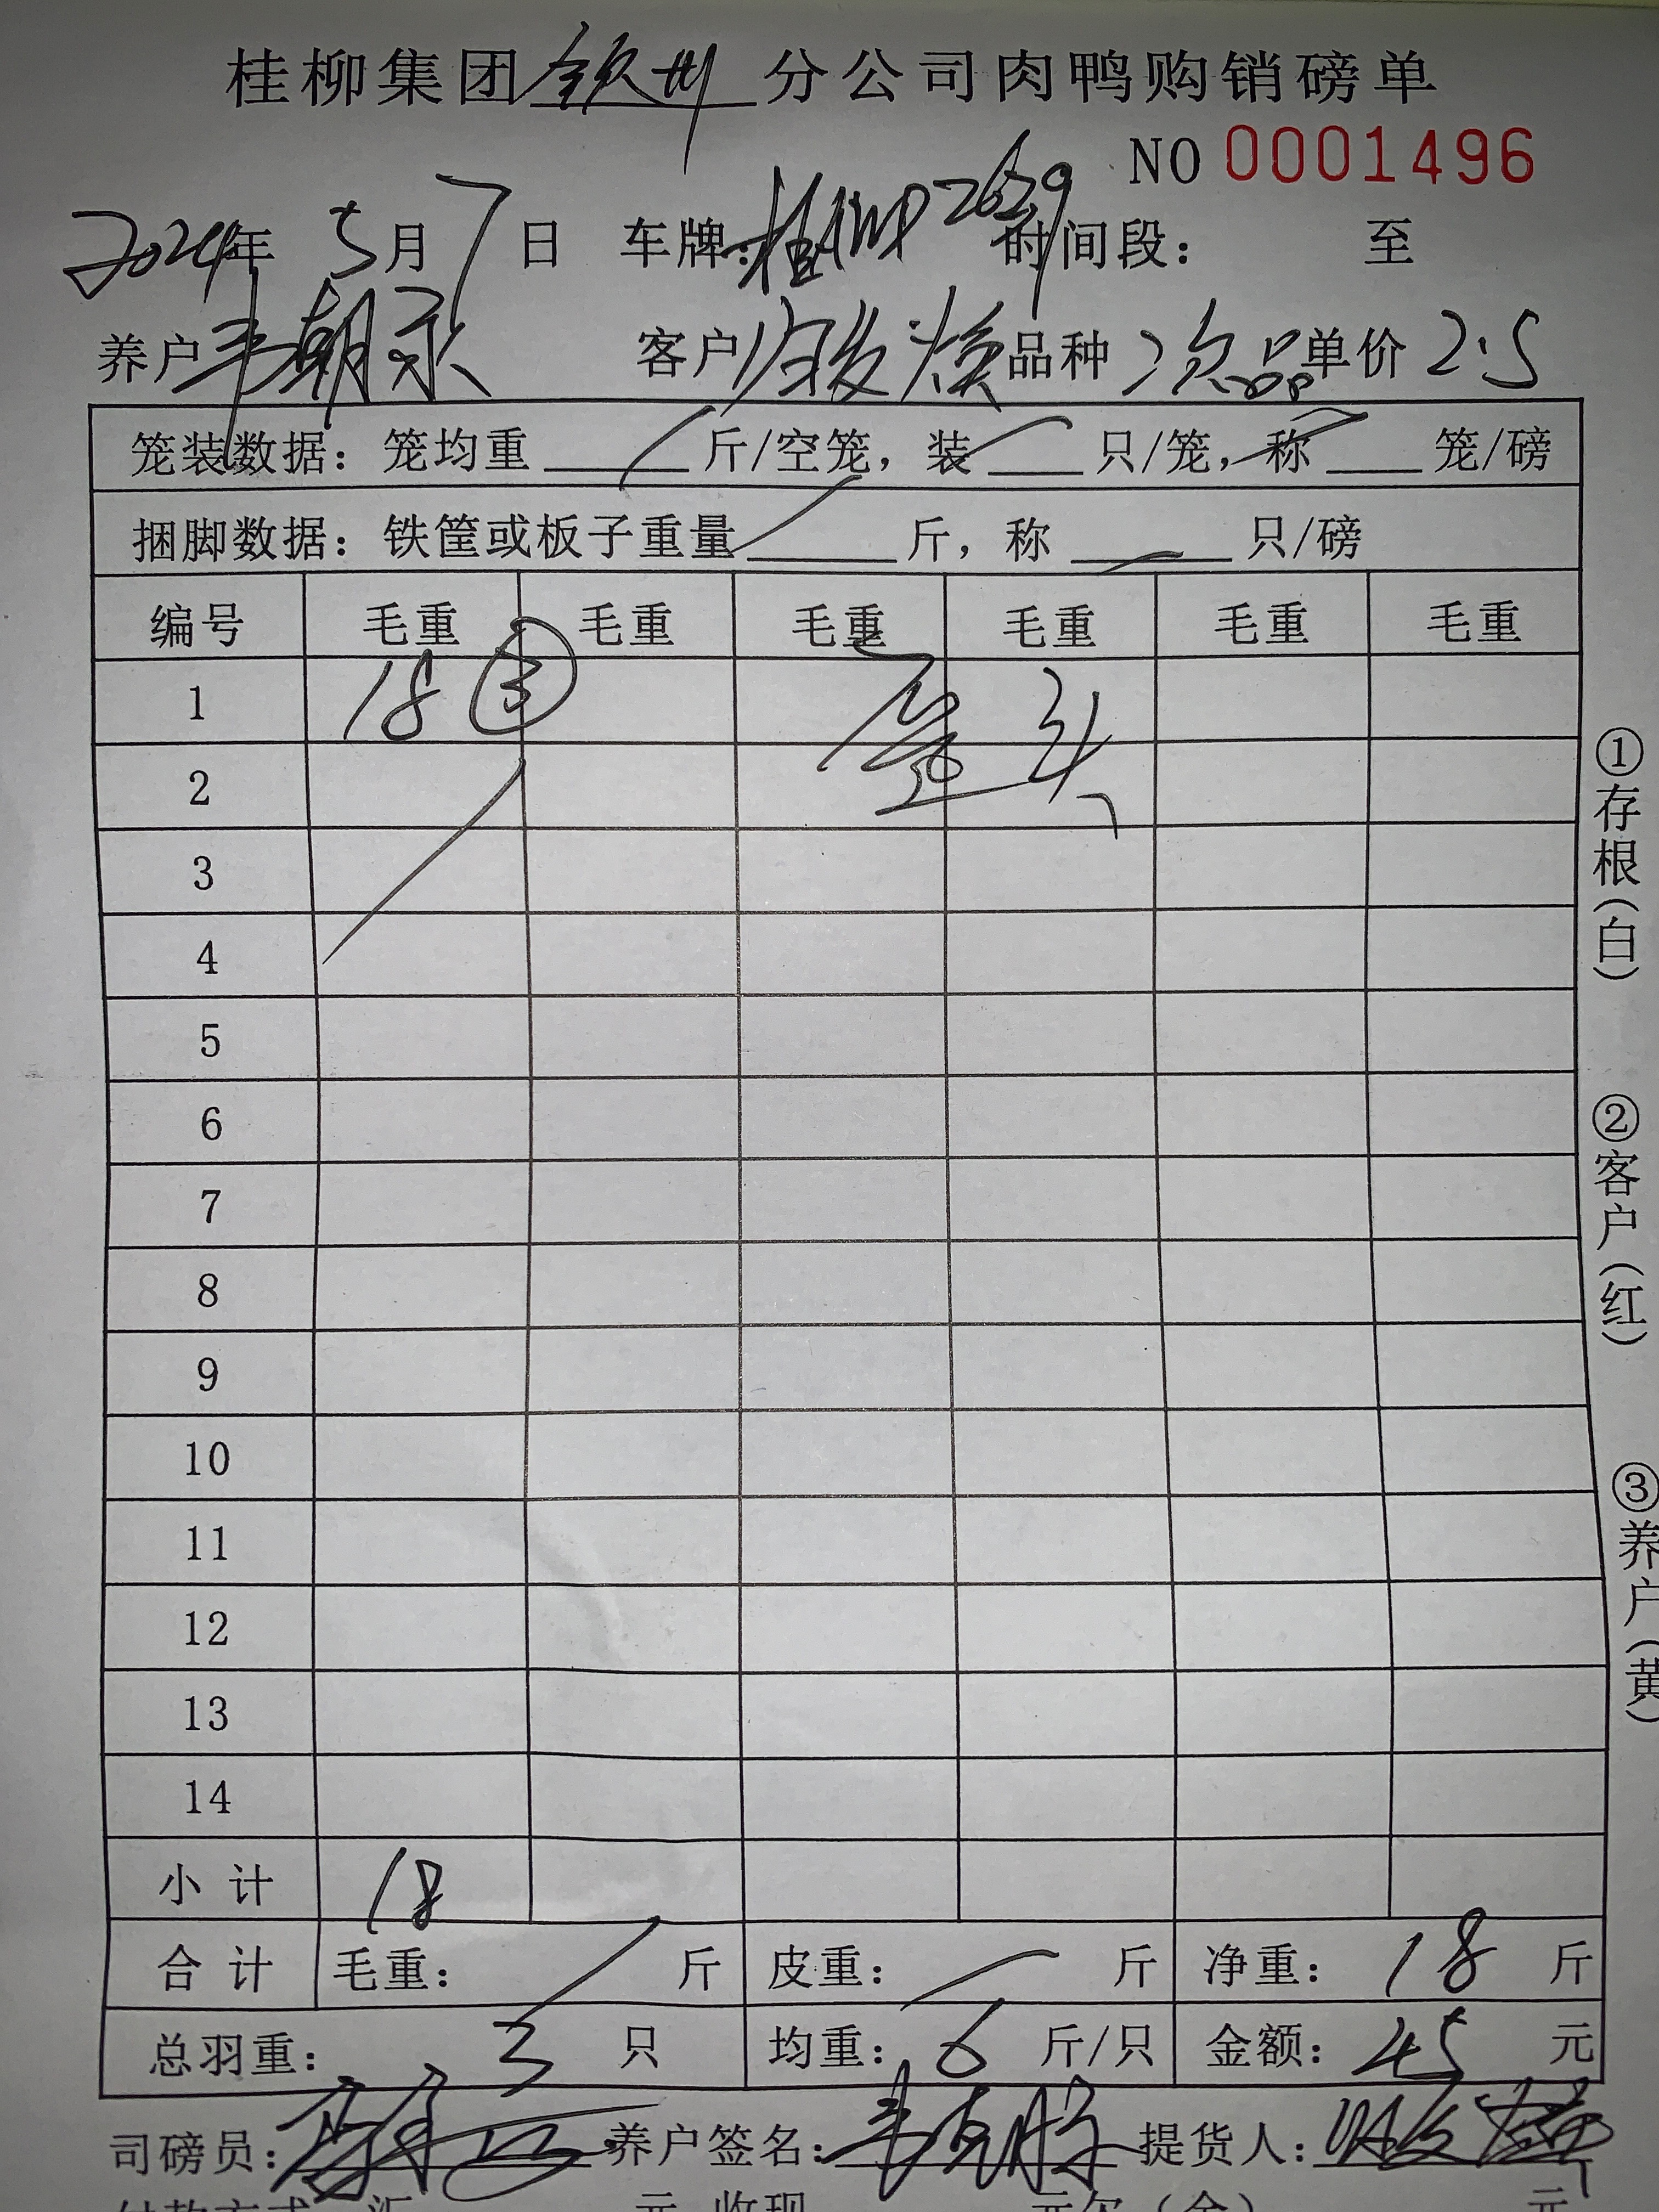 桂柳集团钦州分公司肉鸭购销磅单
NO 0001496
2024年 5月 7日 车牌:桂 2629 时间段: 至
养户韦朝 客户 焕 品种 次品 单价 2.5
笼装数据: 笼均重 斤/空笼, 装 只/笼, 称 笼/磅
捆脚数据: 铁筐或板子重量 斤, 称 只/磅
编号 毛重 毛重 毛重 毛重 毛重 毛重
1 18 ③
2
3
4
5
6
7
8
9
10
11
12
13
14
小计 18
合计 毛重: 斤 皮重: 斤 净重: 18 斤
总羽重: 3 只 均重: 6 斤/只 金额: 45 元
司磅员: 养户签名: 提货人:
①存根(白)
②客户(红)
③养户(黄)